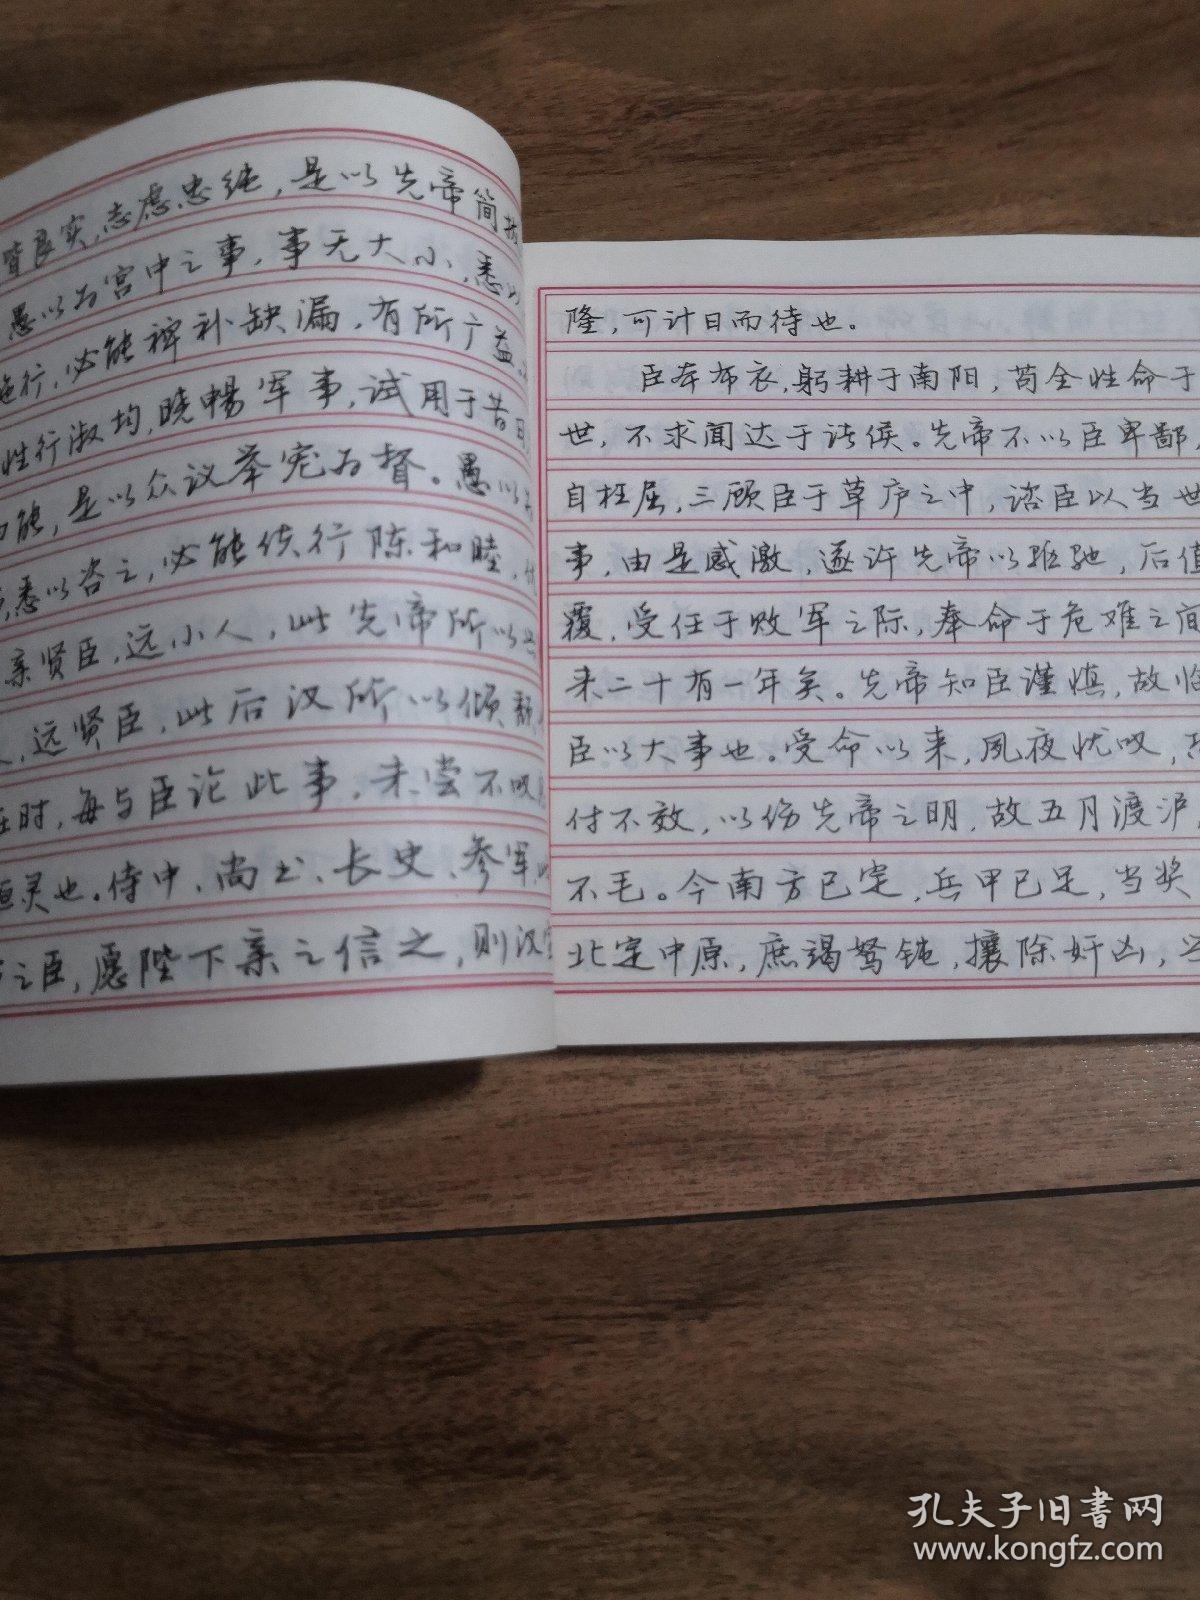 皆良实，志虑忠纯，是以先帝简拔
愚以为宫中之事，事无大小，悉以
施行，必能裨补缺漏，有所广益
性行淑均，晓畅军事，试用于昔日
能，是以众议举宠为督。愚以
悉以咨之，必能使行陈和睦，优
亲贤臣，远小人，此先帝所以
远贤臣，此后汉所以倾颓
在时，每与臣论此事，未尝不叹
桓灵也。侍中、尚书、长史、参军，
之臣，愿陛下亲之信之，则汉室
隆，可计日而待也。
臣本布衣，躬耕于南阳，苟全性命于
世，不求闻达于诸侯。先帝不以臣卑鄙，
自枉屈，三顾臣于草庐之中，谘臣以当世
事，由是感激，遂许先帝以驱驰，后值
覆，受任于败军之际，奉命于危难之间
来二十有一年矣。先帝知臣谨慎，故临
臣以大事也。受命以来，夙夜忧叹，恐
付不效，以伤先帝之明，故五月渡泸，
不毛。今南方已定，兵甲已足，当奖
北定中原，庶竭驽钝，攘除奸凶，兴
孔夫子旧书网
www.kongfz.com